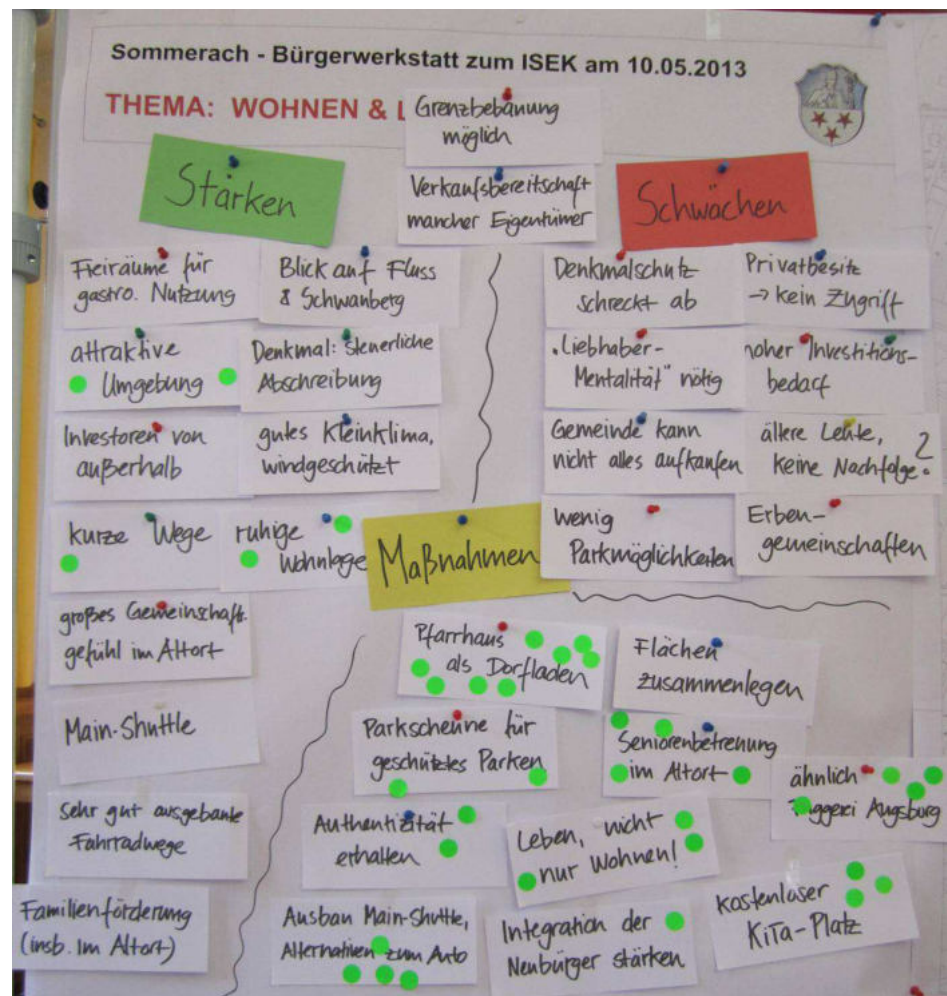 Sommerach - Bürgerwerkstatt zum ISEK am 10.05.2013
THEMA: WOHNEN & L
Grenzbebauung
möglich
Verkaufsbereitschaft
mancher Eigentümer
Stärken
Schwächen
Freiräume für
gastro. Nutzung
Blick auf Fluss
& Schwanberg
attraktive
Umgebung
Denkmal: Steuerliche
Abschreibung
Investoren von
außerhalb
gutes Kleinklima,
windgeschützt
kurze Wege
ruhige
Wohnlage
großes Gemeinschafts.
gefühl im Altort
Main-Shuttle
Sehr gut ausgebaute
Fahrradwege
Familienförderung
(insb. im Altort)
Denkmalschutz
schreckt ab
Privatbesitz
→ kein Zugriff
"Liebhaber-
Mentalität" nötig
hoher Investitions-
bedarf
Gemeinde kann
nicht alles aufkaufen
ältere Leute,
keine Nachfolge?
wenig
Parkmöglichkeiten
Erben-
gemeinschaften
Maßnahmen
Pfarrhaus
als Dorfladen
Flächen
zusammenlegen
Parkscheune für
geschütztes Parken
Seniorenbetreuung
im Altort
ähnlich
Fuggerei Augsburg
Authentizität
erhalten
Leben, nicht
nur Wohnen!
kostenloser
KiTa-Platz
Ausbau Main-Shuttle,
Alternativen zum Auto
Integration der
Neubürger stärken